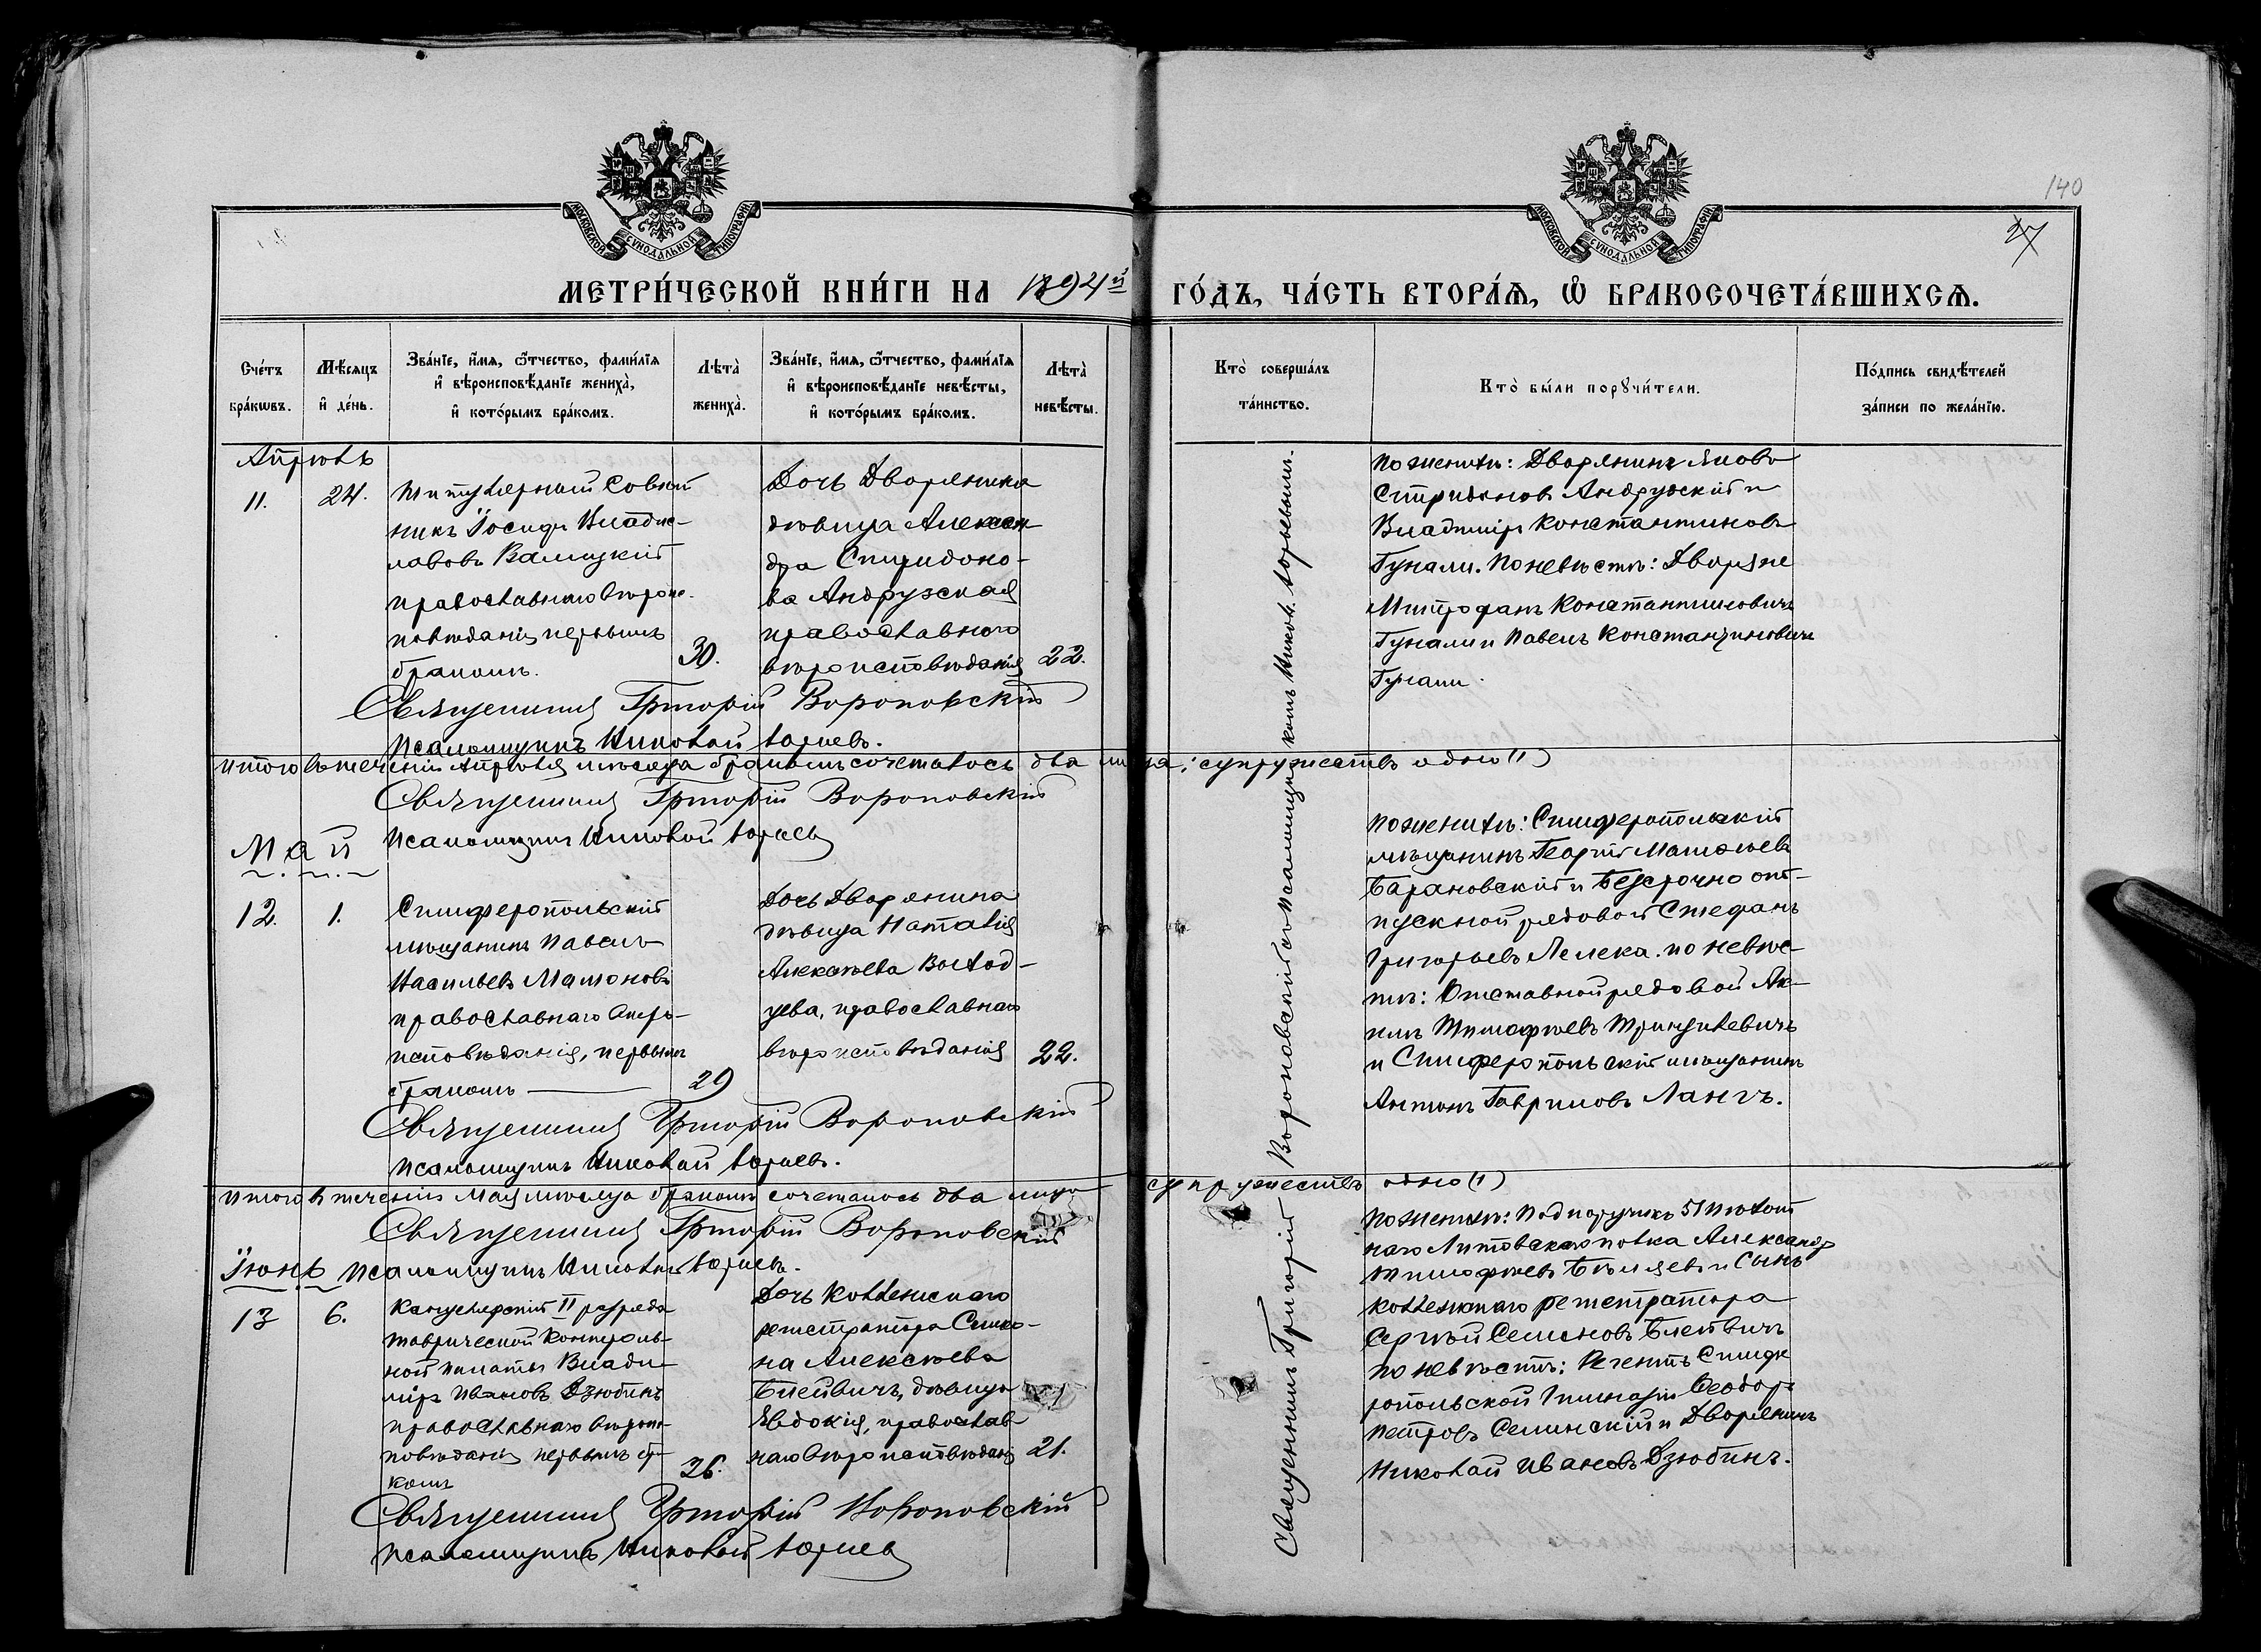 МОСКОВСКОЙ СѴНОДАЛЬНОЙ ТИПОГРАФІИ
МОСКОВСКОЙ СѴНОДАЛЬНОЙ ТИПОГРАФІИ
140
27
МЕТРИ́ЧЕСКОЙ КНИ́ГИ НА 1894й ГО́ДЪ, ЧА́СТЬ ВТОРА́Ѧ, Ѡ҆ БРАКОСОЧЕТА́ВШИХСѦ.
Сче́тъ бра́кѡвъ.
Мѣ́сѧцъ и҆ де́нь.
Зва́нїе, и҆́мѧ, ѻ҆́тчество, фами́лїѧ
и҆ вѣроисповѣ́данїе жениха̀,
и҆ кото́рымъ бра́комъ.
Лѣта̀ жениха̀.
Зва́нїе, и҆́мѧ, ѻ҆́тчество, фами́лїѧ
и҆ вѣроисповѣ́данїе невѣ́сты,
и҆ кото́рымъ бра́комъ.
Лѣта̀ невѣ́сты.
Кто̀ соверша́лъ та́инство.
Кто̀ бы́ли порꙋчи́тели.
По́дпись свидѣ́телей
за́писи по жела́нїю.
Апрѣль
11.
24.
Титулярный Совѣт
никъ Іосифъ Владис-
лавовъ Валицкій
православнаго вѣроис-
повѣданія первымъ
бракомъ.
30.
Дочь Дворянина
дѣвица Алексан
дра Спиридоно-
ва Андрузская
православнаго
вѣроисповѣданія
22.
По женихѣ: Дворянинъ Яковъ
Спиридоновъ Андрузскій и
Владиміръ Константиновъ
Гунали. По невѣстѣ: Дворяне
Митрофанъ Константиновичъ
Гунали и Павелъ Константиновичъ
Гунали.
Священникъ Григорій Вороповскій
Псаломщикъ Николай Юрьевъ.
Итого въ теченіи Апрѣля мѣсяца бракомъ сочеталось два лица; супружествъ одно (1)
Священникъ Григорій Вороповскій
Псаломщикъ Николай Юрьевъ
Май
12.
1.
Симферопольскій
мѣщанинъ Павелъ
Васильевъ Мамоновъ
православнаго вѣро-
исповѣданія, первымъ
бракомъ
29
Дочь Дворянина
дѣвица Наталія
Алексѣева
православнаго
вѣроисповѣданія
22.
По женихѣ: Симферопольскій
мѣщанинъ Георгій Матвѣевъ
Барановскій и Безсрочно от-
пускной рядовой Стефанъ
Григорьевъ Лелека. по невѣс-
тѣ: Отставной рядовой Як-
имъ Тимофѣевъ Тринулевичъ
и Симферопольскій мѣщанинъ
Антонъ Гавриловъ Лангъ.
Священникъ Григорій Вороповскій
Псаломщикъ Николай Юрьевъ.
Итого въ теченіи Мая мѣсяца бракомъ сочеталось два лица супружествъ одно (1)
Священникъ Григорій Вороповскій
Іюнь
Псаломщикъ Николай Юрьевъ.
13
6.
Канцелярскій II разряда
Таврической Контроль-
ной Палаты Влади-
міръ Ивановъ Дзюбинъ
православнаго вѣроис-
повѣданія первымъ бра-
комъ
26.
Дочь Коллежскаго
регистратора Симо-
на Алексѣева
Блейвичъ, дѣвица
Евдокія, православ-
наго вѣроисповѣданія
21.
По женихѣ: Подпоручикъ 51 Пѣхот
наго Литовскаго полка Александръ
Тимофѣевъ Бѣляевъ и Сынъ
коллежскаго регистратора
Сергѣй Семеновъ Блейвичъ
по невѣстѣ: Регентъ Симфе
ропольской Гимназіи Ѳеодоръ
Петровъ Селинскій и Дворянинъ
Николай Ивановъ Дзюбинъ.
Священникъ Григорій Вороповскій
Псаломщикъ Николай Юрьевъ
Священникъ Григорій Вороповскій съ Псаломщикомъ Никол. Юрьевымъ.